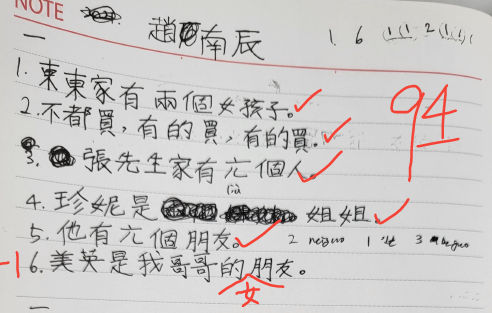 NOTE
趙南辰
一
1. 東東家有兩個女孩子。
2. 不都買,有的買,有的買。
3. 張先生家有六個人。
liù
4. 珍妮是姐姐。
5. 他有六個朋友。
-1 6. 美英是我哥哥的朋友。
女
94
二